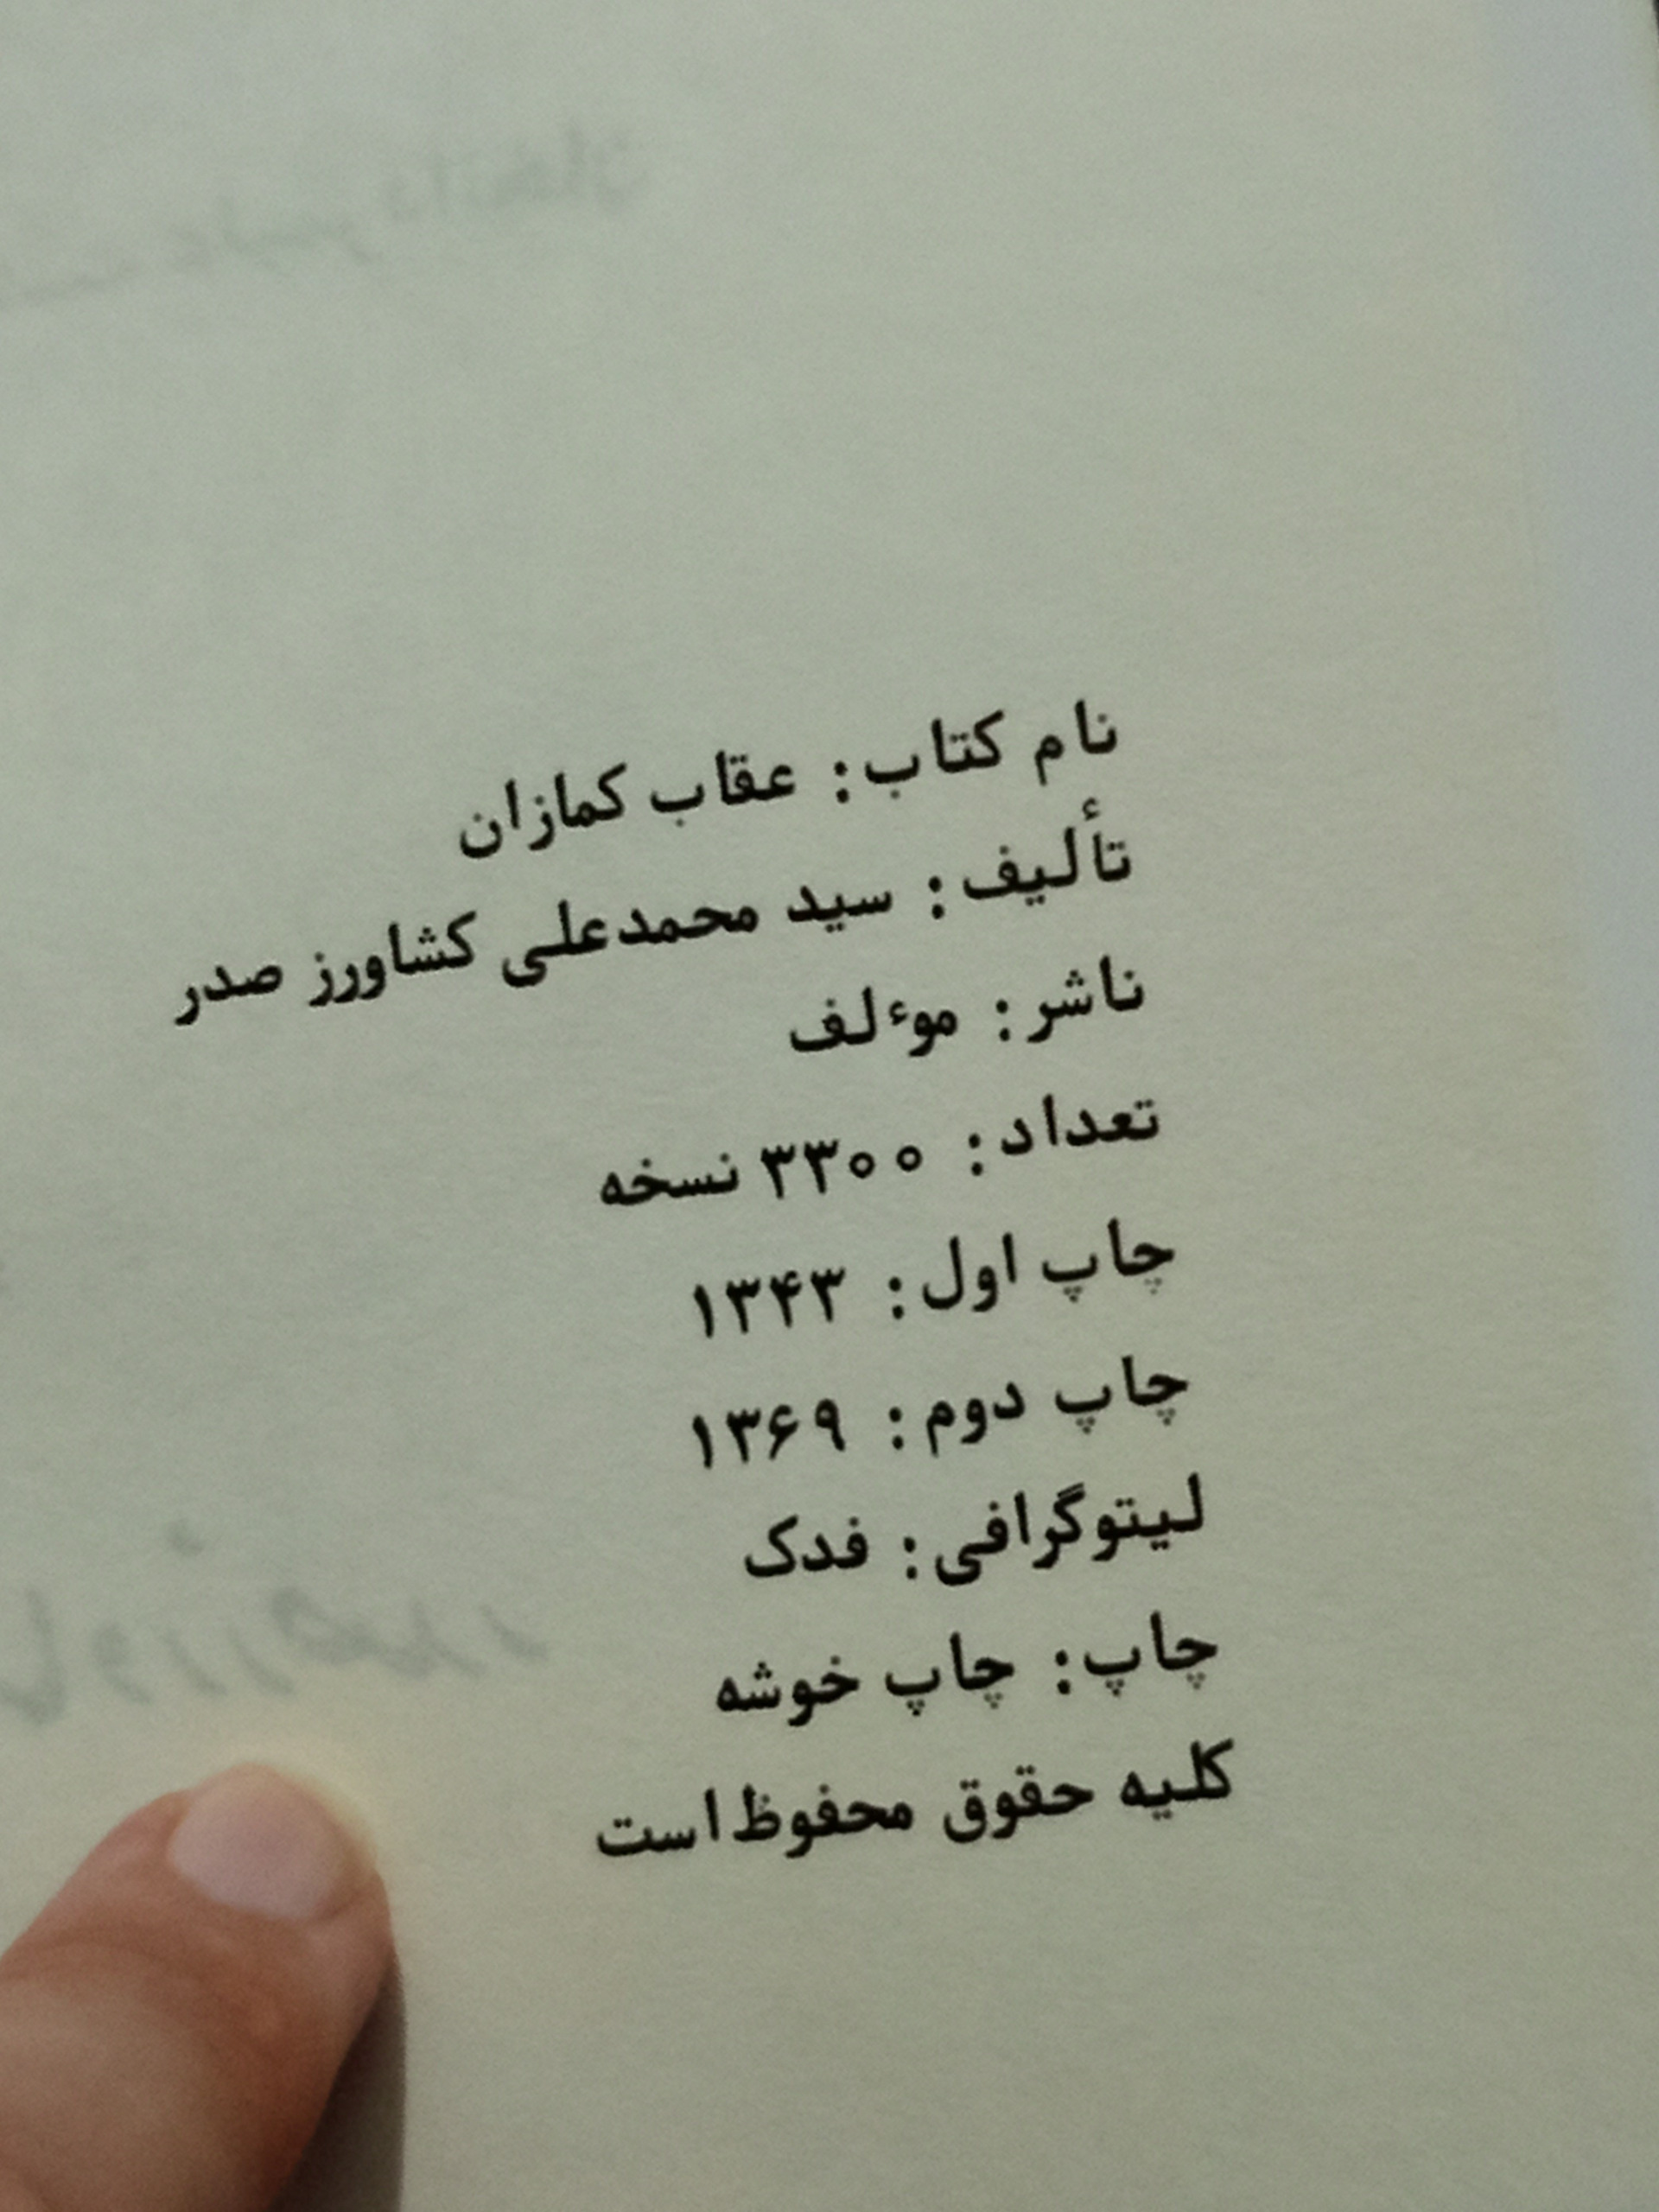 نام کتاب: عقاب کمازان
تألیف: سید محمدعلی کشاورز صدر
ناشر: موءلف
تعداد: ۳۳۰۰ نسخه
چاپ اول: ۱۳۴۳
چاپ دوم: ۱۳۶۹
لیتوگرافی: فدک
چاپ: چاپ خوشه
کلیه حقوق محفوظ است